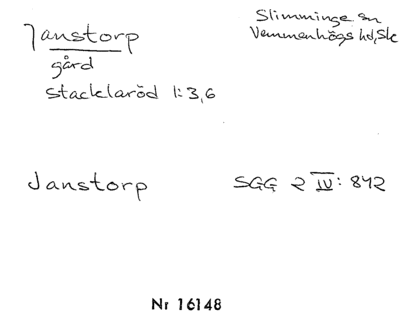 Janstorp
Slimminge sn
Vemmenhögs hd, Sk
gård
stacklaröd 1:3,6
Janstorp
SGG 2 IV: 842
Nr 16148